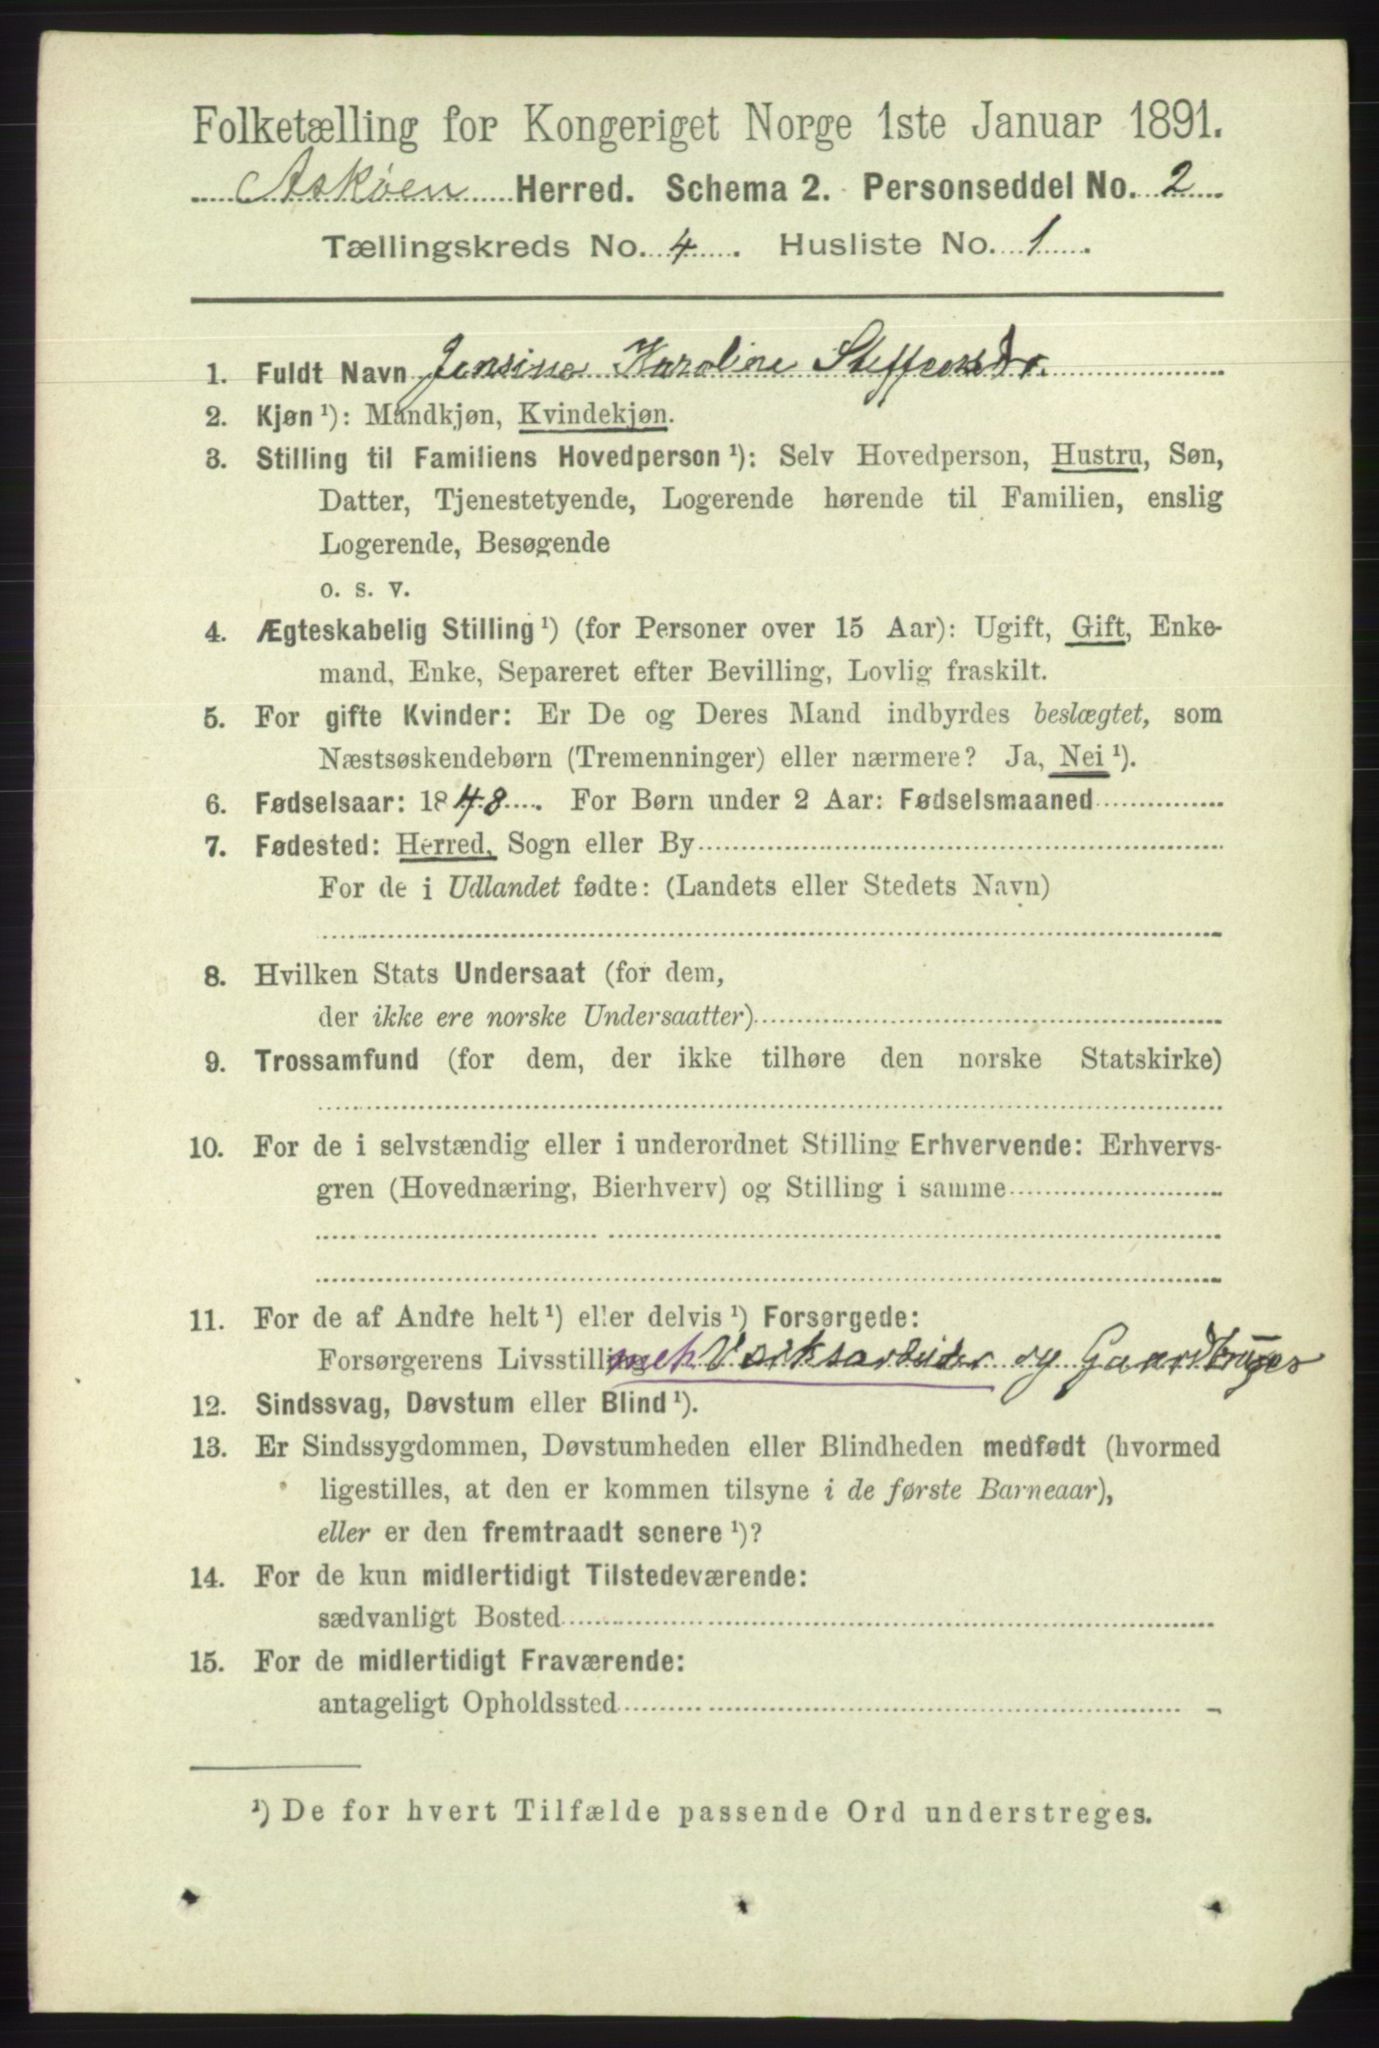 Folketælling for Kongeriget Norge 1ste Januar 1891.
Askøen Herred. Schema 2. Personseddel No. 2
Tællingskreds No. 4. Husliste No. 1.
1. Fuldt Navn Jensine Karoline Steffensdr.
2. Kjøn ¹): Mandkjøn, Kvindekjøn.
3. Stilling til Familiens Hovedperson ¹): Selv Hovedperson, Hustru, Søn,
Datter, Tjenestetyende, Logerende hørende til Familien, enslig
Logerende, Besøgende
o. s. v.
4. Ægteskabelig Stilling ¹) (for Personer over 15 Aar): Ugift, Gift, Enke-
mand, Enke, Separeret efter Bevilling, Lovlig fraskilt.
5. For gifte Kvinder: Er De og Deres Mand indbyrdes beslægtet, som
Næstsøskendebørn (Tremenninger) eller nærmere? Ja, Nei ¹).
6. Fødselsaar: 1848. For Børn under 2 Aar: Fødselsmaaned
7. Fødested: Herred, Sogn eller By
For de i Udlandet fødte: (Landets eller Stedets Navn)
8. Hvilken Stats Undersaat (for dem,
der ikke ere norske Undersaatter)
9. Trossamfund (for dem, der ikke tilhøre den norske Statskirke)
10. For de i selvstændig eller i underordnet Stilling Erhvervende: Erhvervs-
gren (Hovednæring, Bierhverv) og Stilling i samme
11. For de af Andre helt ¹) eller delvis ¹) Forsørgede:
Forsørgerens Livsstilling mek Værksarbeider og Gaardbruger
12. Sindssvag, Døvstum eller Blind ¹).
13. Er Sindssygdommen, Døvstumheden eller Blindheden medfødt (hvormed
ligestilles, at den er kommen tilsyne i de første Barneaar),
eller er den fremtraadt senere ¹)?
14. For de kun midlertidigt Tilstedeværende:
sædvanligt Bosted
15. For de midlertidigt Fraværende:
antageligt Opholdssted
¹) De for hvert Tilfælde passende Ord understreges.